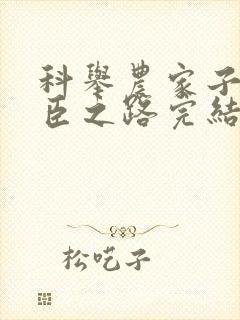 科舉農家子
臣之路完結
松吃子